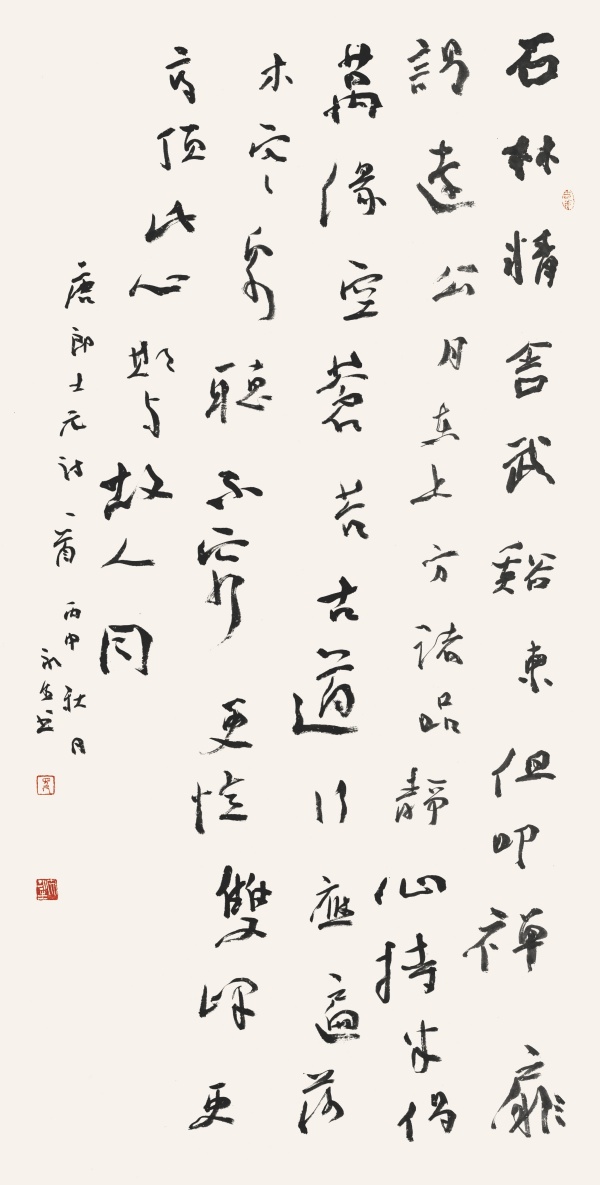 石林精舍武谿東但叩禅扉
謁遠公月在上方諸品靜心持半偈
萬緣空蒼苔古道行應遍落
木寒泉聽不窮更憶雙峰更
高頂此心期与故人同
唐郎士元詩一首 丙申秋月